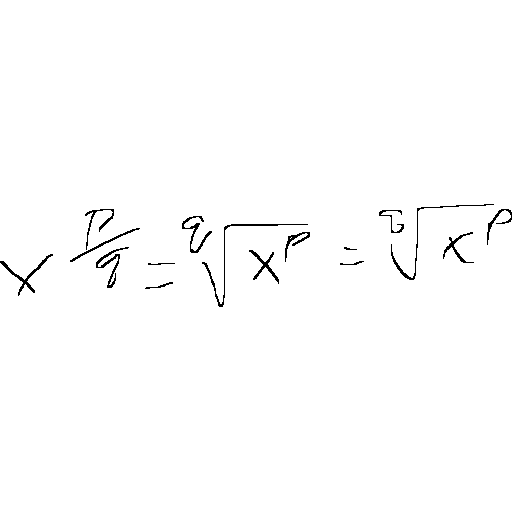 x^{\frac{p}{q}} = \sqrt[q]{x^p} = \sqrt[q]{x}^p